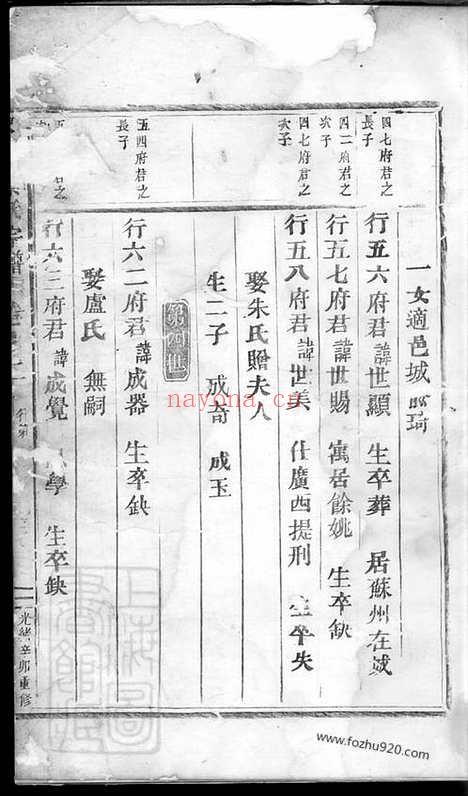 一女適邑城
四七府君之
長子
行五六府君諱世顯 生卒葬 居蘇州在城
四二府君之
次子
行五七府君諱世賜 寓居餘姚 生卒缺
四七府君之
次子
行五八府君諱世美 仕廣西提刑 生卒失
娶朱氏贈夫人
生二子 成奇 成玉
第四世
五四府君之
長子
行六二府君諱成器 生卒缺
娶盧氏 無嗣
行六三府君諱成覺 學 生卒缺
光緒辛卯重修
nayona.cn
www.fozhu920.com